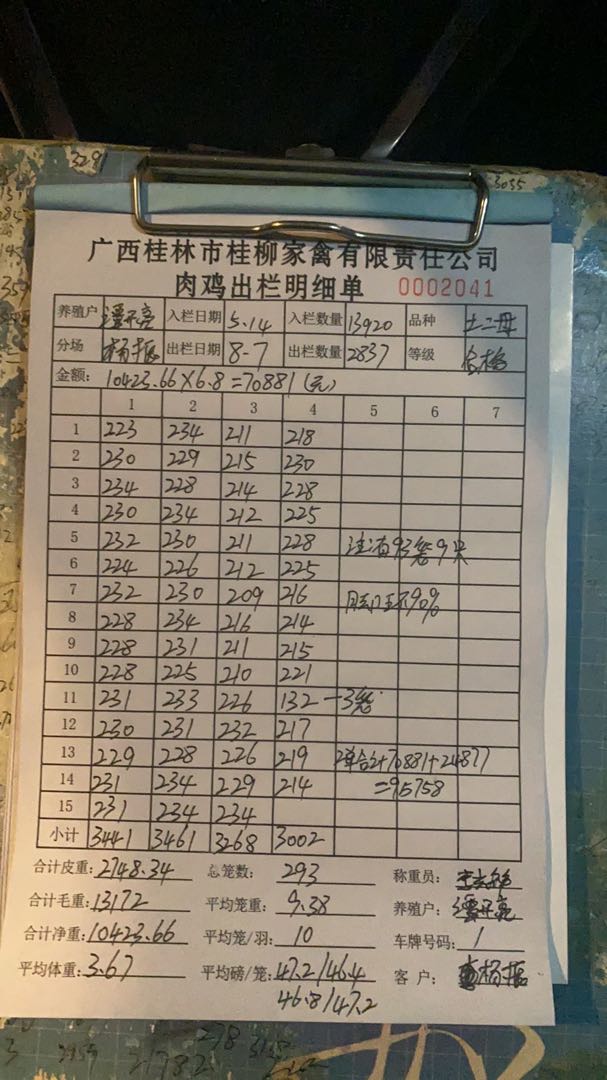 3281
3055
广西桂林市桂柳家禽有限责任公司
肉鸡出栏明细单 0002041
养殖户 入栏日期 5.14 入栏数量 13920 品种 土二母
分场 杨振 出栏日期 8-7 出栏数量 2837 等级 合格
金额: 10423.66×6.8=70881(元)
1 2 3 4 5 6 7
1 223 234 211 218
2 230 229 215 230
3 234 228 214 228
4 230 234 212 225
5 232 230 211 228 注:有93笼9只
6 224 226 212 225
7 232 230 209 216 90%
8 228 234 216 214
9 228 231 211 215
10 228 225 210 221
11 231 233 226 132 —3笼
12 230 231 232 217
13 229 228 226 219 2单合计70881+24877
14 231 234 229 214 =95758
15 231 234 234
小计 3441 3461 3268 3002
合计皮重: 2748.34 总笼数: 293 称重员:
合计毛重: 13172 平均笼重: 9.38 养殖户:
合计净重: 10423.66 平均笼/羽: 10 车牌号码: 1
平均体重: 3.67 平均磅/笼: 47.2/46.4 客户: 杨振
46.8/47.2
278
21782